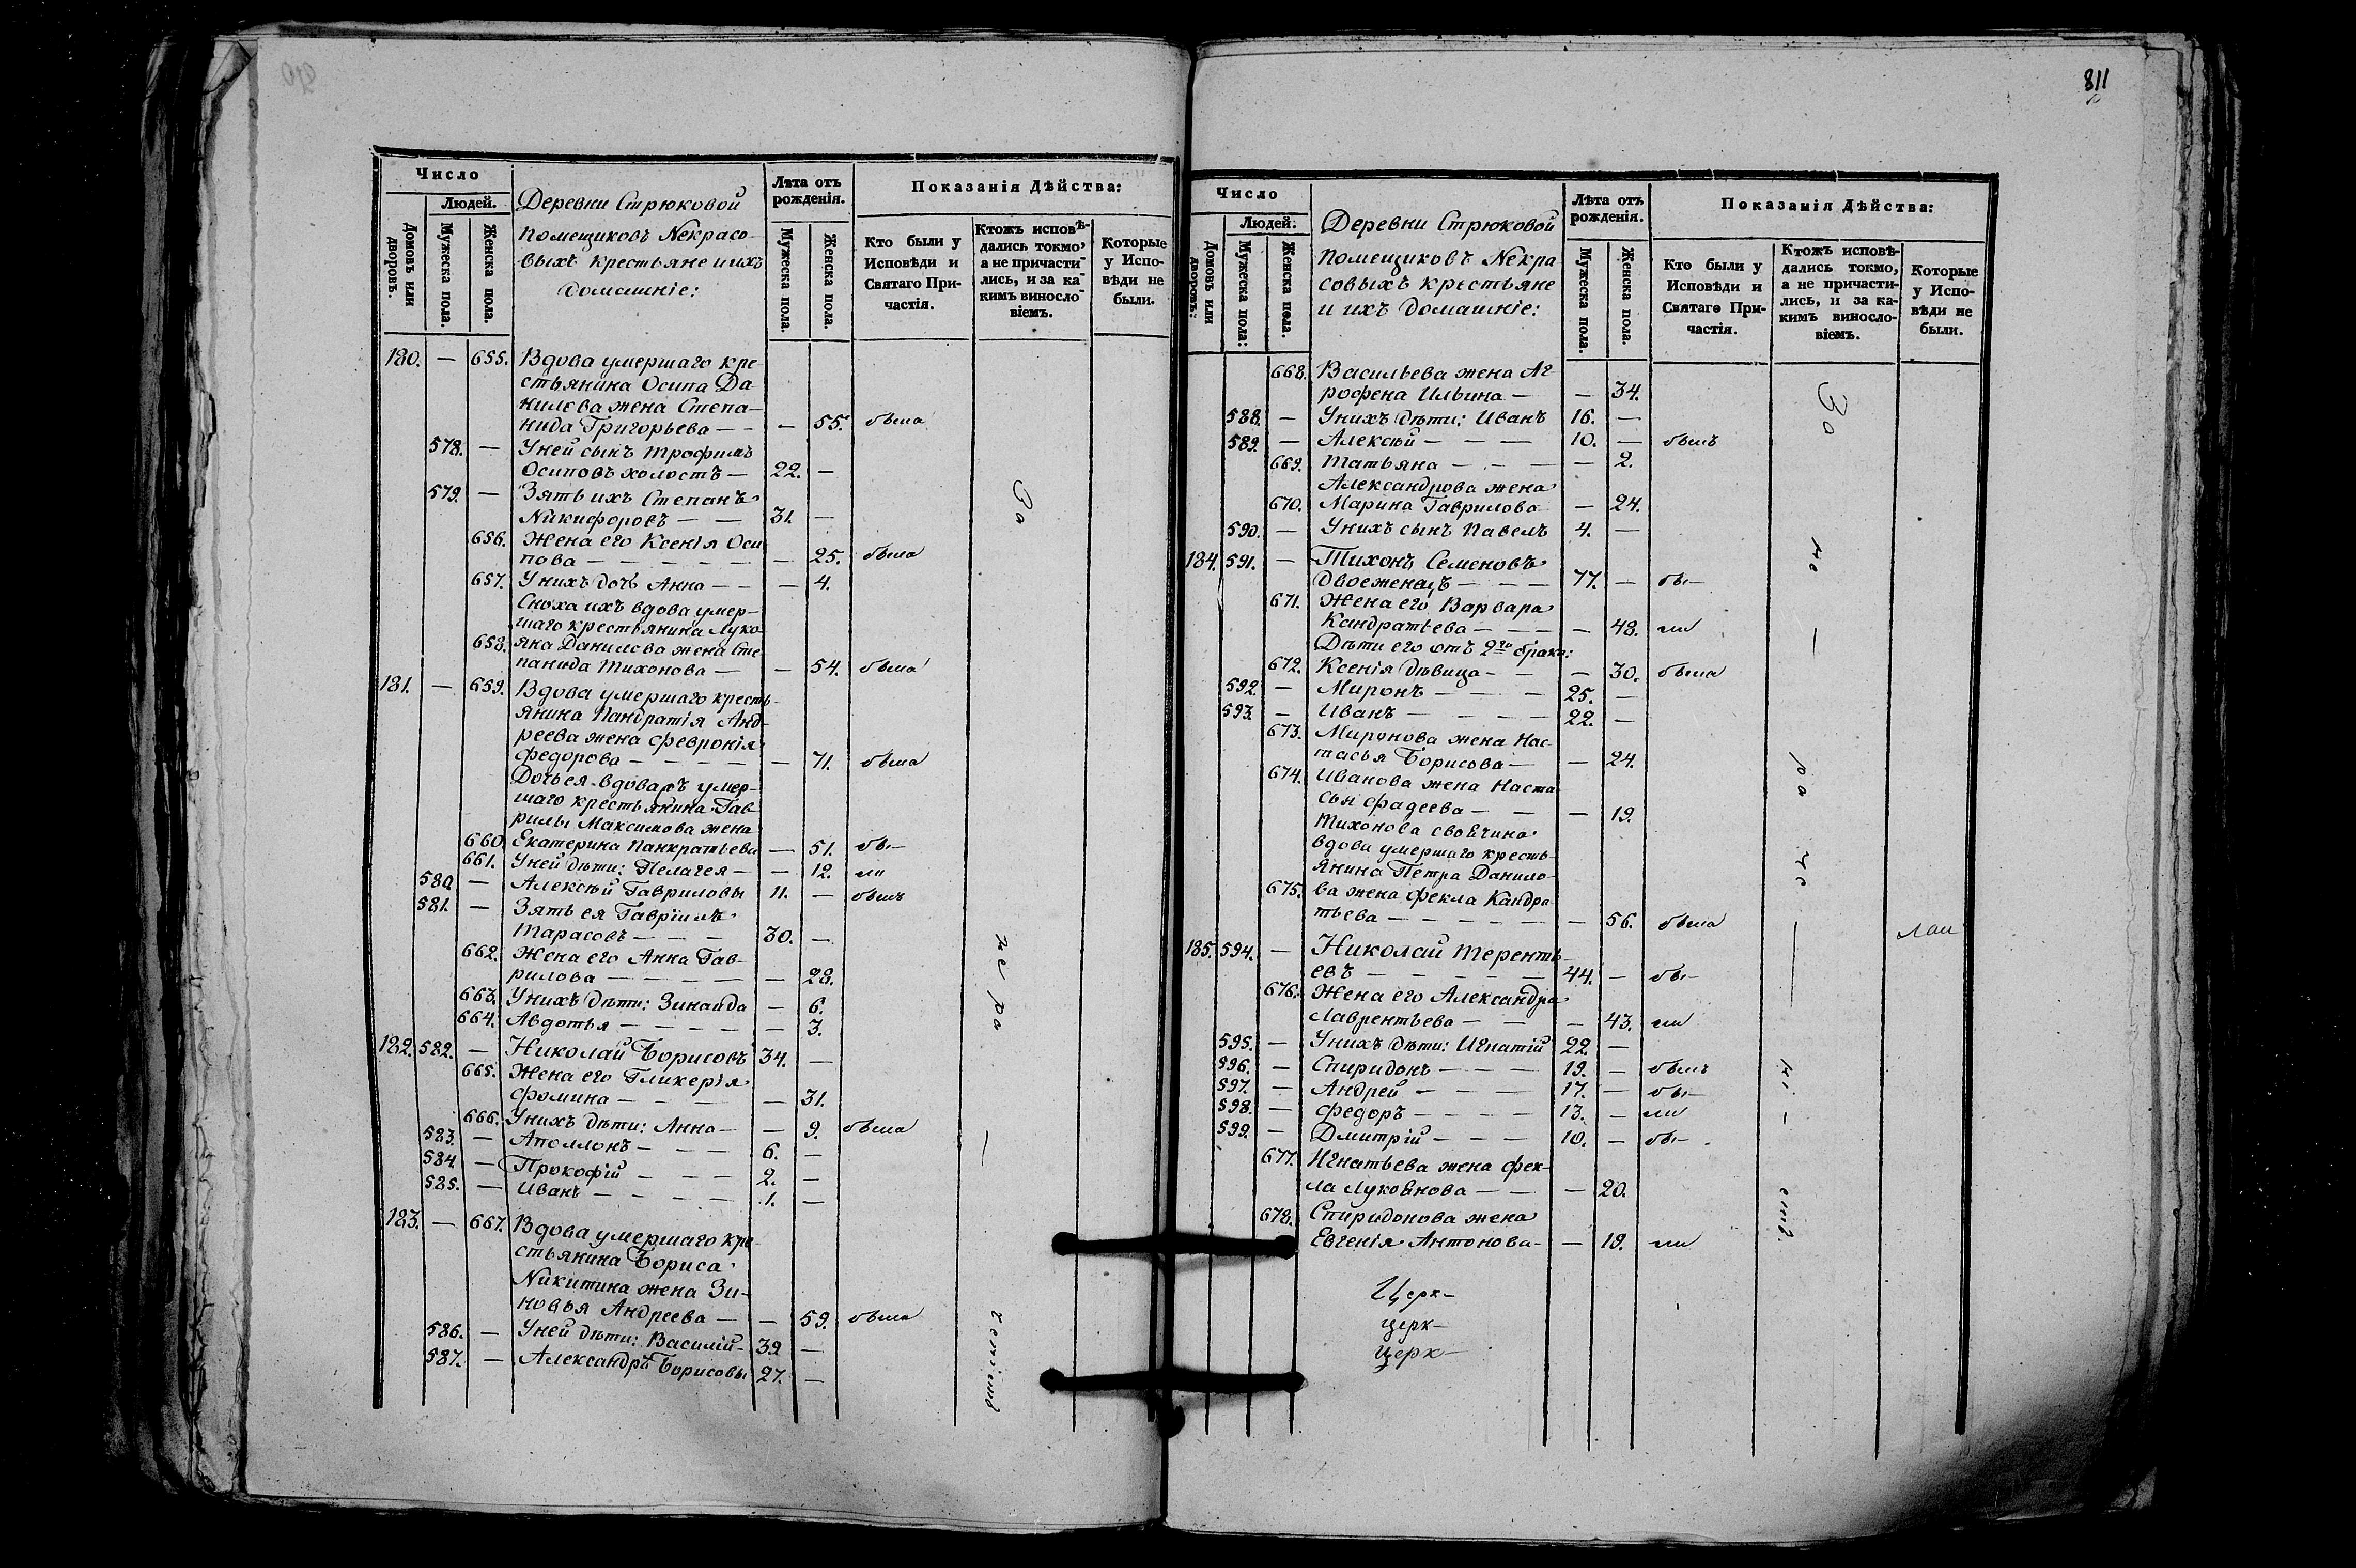 811
Число
Людей.
Домовъ или дворовъ.
Мужеска пола.
Женска пола.
Деревни Стрюковой
помещиковъ Некрасо-
выхъ крестьяне и ихъ
домашніе:
Лѣта отъ рожденія.
Мужеска пола.
Женска пола.
Показанія Дѣйства:
Кто были у Исповѣди и Святаго При-частія.
Ктожъ исповѣ-дались токмо, а не причасти-лись, и за ка-кимъ винosло-віемъ.
Которые у Испо-вѣди не были.
180. — 655. Вдова умершаго кре-
стьянина Осипа Да-
нилова жена Степа-
нида Григорьева — — — 55. была
578. — У ней сынъ Трофимъ
Осиповъ холостъ — 22. —
579. — Зять ихъ Степанъ
Никифоровъ — — 31. —
656. Жена его Ксенія Оси
пова — — — — — 25. была
657. У нихъ дочь Анна — — — 4.
Сноха ихъ вдова умер-
шаго крестьянина Лукo-
658. яна Данилова жена Сте
панида Тихонова — — 54. была
181. — 659. Вдова умершаго кресть-
янина Панкратія Анд-
реева жена Февронія
Федорова — — — — — 71. была
Дочь ея вдова умер-
шаго крестьянина Гав-
рилы Максимова жена
660. Екатерина Панкратьева — 51. бы-
661. У ней дѣти: Пелагея — — 12. ли
580. — Алексѣй Гавриловы 11. — былъ
581. — Зять ея Гавріилъ
Тарасовъ — — — 30. —
662. Жена его Анна Гав-
рилова — — — — — 28.
663. У нихъ дѣти: Зинаида — 6.
664. Авдотья — — — — — 3.
182. 582. — Николай Борисовъ 34. —
665. Жена его Гликерія
Фомина — — — — — 31.
666. У нихъ дѣти: Анна — — 9. была
583. — Аполлонъ — — — 6. —
584. — Прокофій — — — 2. —
585. — Иванъ — — — — 1. —
183. — 667. Вдова умершаго кре-
стьянина Бориса
Никитина жена Зи-
новья Андреева — — 59. была
586. — У ней дѣти: Василій — 39 —
587. — Александръ Борисовы 27. —
За
Число
Людей.
Домовъ или дворовъ.
Мужеска пола.
Женска пола.
Деревни Стрюковой
помещиковъ Некра
совыхъ крестьяне
и ихъ домашніе:
Лѣта отъ рожденія.
Мужеска пола.
Женска пола.
Показанія Дѣйства:
Кто были у Исповѣди и Святаго При-частія.
Ктожъ исповѣ-дались токмо, а не причасти-лись, и за ка-кимъ виносло-віемъ.
Которые у Испо-вѣди не были.
668. Васильева жена Аг-
рофена Ильина — — 34.
588. — У нихъ дѣти: Иванъ 16. —
589. — Алексѣй — — — 10. — былъ
669. Татьяна — — — — 2.
Александрова жена
670. Марина Гаврилова — 24.
590. — У нихъ сынъ Павелъ 4. —
184. 591. — Тихонъ Семеновъ
Двоеженецъ — — — 77. — бы-
671. Жена его Варвара
Кандратьева — — — — 48. ли
Дѣти его отъ 2го брака:
672. Ксенія дѣвица — — — 30. была
592. — Миронъ — — — 25. —
593. — Иванъ — — — — 22. —
673. Миронова жена Нас-
тасья Борисова — — 24.
674. Иванова жена Наста
сья Фадеева — — — 19.
Тихонова своячина
вдова умершаго кресть-
янина Петра Данило-
675. ва жена Фекла Кандра
тьева — — — — — — 56. была
185. 594. — Николай Теренть-
евъ — — — — — 44. — бы-
676. Жена его Александра
Лаврентьева — — — 43. ли
595. — У нихъ дѣти: Игнатій 22. —
596. — Спиридонъ — — — 19. — былъ
597. — Андрей — — — 17. — бы-
598. — Федоръ — — — — 13. — ли
599. — Дмитрій — — — 10. — бы-
677. Игнатьева жена Фек-
ла Лукоянова — — — 20.
678. Спиридонова жена
Евгенія Антонова — — 19. ли
Церк-
церк-
церк-
За